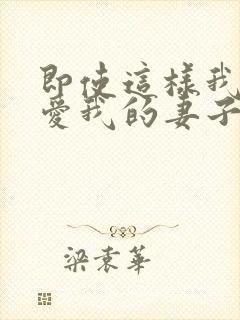 即使這樣我
愛我的妻子
梁袁華